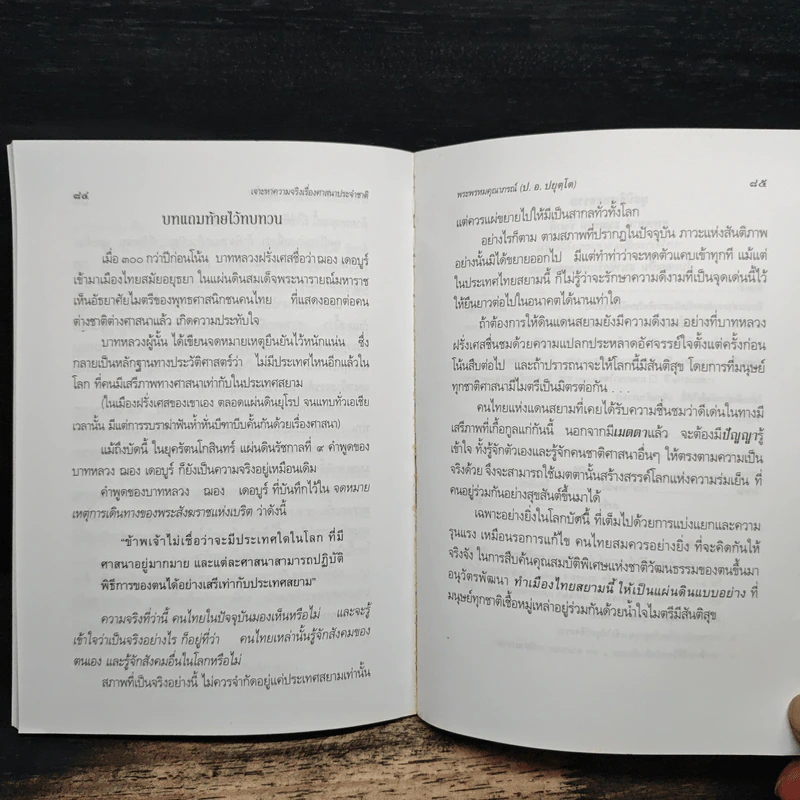 ๘๔
เจาะหาความจริงเรื่องศาสนาประจำชาติ
บทแถมท้ายไว้ทบทวน
เมื่อ ๓๐๐ กว่าปีก่อนโน้น บาทหลวงฝรั่งเศสชื่อว่า ฌอง เดอบูร์
เข้ามาเมืองไทยสมัยอยุธยา ในแผ่นดินสมเด็จพระนารายณ์มหาราช
เห็นอัธยาศัยไมตรีของพุทธศาสนิกชนคนไทย ที่แสดงออกต่อคน
ต่างชาติต่างศาสนาแล้ว เกิดความประทับใจ
บาทหลวงผู้นั้น ได้เขียนจดหมายเหตุยืนยันไว้หนักแน่น ซึ่ง
กลายเป็นหลักฐานทางประวัติศาสตร์ว่า ไม่มีประเทศไหนอีกแล้วใน
โลก ที่คนมีเสรีภาพทางศาสนาเท่ากับในประเทศสยาม
(ในเมืองฝรั่งเศสของเขาเอง ตลอดแผ่นดินยุโรป จนแทบทั่วเอเชีย
เวลานั้น มีแต่การรบราฆ่าฟันห้ำหั่นบีฑาบีบคั้นกันด้วยเรื่องศาสนา)
แม้ถึงบัดนี้ ในยุครัตนโกสินทร์ แผ่นดินรัชกาลที่ ๙ คำพูดของ
บาทหลวง ฌอง เดอบูร์ ก็ยังเป็นความจริงอยู่เหมือนเดิม
คำพูดของบาทหลวง ฌอง เดอบูร์ ที่บันทึกไว้ใน จดหมาย
เหตุการเดินทางของพระสังฆราชแห่งเบริต ว่าดังนี้
“ข้าพเจ้าไม่เชื่อว่าจะมีประเทศใดในโลก ที่มี
ศาสนาอยู่มากมาย และแต่ละศาสนาสามารถปฏิบัติ
พิธีการของตนได้อย่างเสรีเท่ากับประเทศสยาม”
ความจริงที่ว่านี้ คนไทยในปัจจุบันมองเห็นหรือไม่ และจะรู้
เข้าใจว่าเป็นจริงอย่างไร ก็อยู่ที่ว่า คนไทยเหล่านั้นรู้จักสังคมของ
ตนเอง และรู้จักสังคมอื่นในโลกหรือไม่
สภาพที่เป็นจริงอย่างนี้ ไม่ควรจำกัดอยู่แค่ประเทศสยามเท่านั้น
พระพรหมคุณาภรณ์ (ป. อ. ปยุตฺโต)
๘๕
แต่ควรแผ่ขยายไปให้มีเป็นสากลทั่วทั้งโลก
อย่างไรก็ตาม ตามสภาพที่ปรากฏในปัจจุบัน ภาวะแห่งสันติภาพ
อย่างนั้นมิได้ขยายออกไป มีแต่ทำท่าว่าจะหดตัวแคบเข้าทุกที แม้แต่
ในประเทศไทยสยามนี้ ก็ไม่รู้ว่าจะรักษาความดีงามที่เป็นจุดเด่นนี้ไว้
ให้ยืนยาวต่อไปในอนาคตได้นานเท่าใด
ถ้าต้องการให้ดินแดนสยามยังมีความดีงาม อย่างที่บาทหลวง
ฝรั่งเศสชื่นชมด้วยความแปลกประหลาดอัศจรรย์ใจตั้งแต่ครั้งก่อน
โน้นสืบต่อไป และถ้าปรารถนาจะให้โลกนี้มีสันติสุข โดยการที่มนุษย์
ทุกชาติศาสนามีไมตรีเป็นมิตรต่อกัน . . . .
คนไทยแห่งแดนสยามที่เคยได้รับความชื่นชมว่าดีเด่นในทางมี
เสรีภาพที่เกื้อกูลแก่กันนี้ นอกจากมีเมตตาแล้ว จะต้องมีปัญญารู้
เข้าใจ ทั้งรู้จักตัวเองและรู้จักคนชาติศาสนาอื่นๆ ให้ตรงตามความเป็น
จริงด้วย จึงจะสามารถใช้เมตตานั้นสร้างสรรค์โลกแห่งความร่มเย็น ที่
คนอยู่ร่วมกันอย่างสุขสันต์ขึ้นมาได้
เฉพาะอย่างยิ่งในโลกบัดนี้ ที่เต็มไปด้วยการแบ่งแยกและความ
รุนแรง เหมือนรอการแก้ไข คนไทยสมควรอย่างยิ่ง ที่จะคิดกันให้
จริงจัง ในการสืบค้นคุณสมบัติพิเศษแห่งชาติวัฒนธรรมของตนขึ้นมา
อนุวัตรพัฒนา ทำเมืองไทยสยามนี้ ให้เป็นแผ่นดินแบบอย่าง ที่
มนุษย์ทุกชาติเชื้อหมู่เหล่าอยู่ร่วมกันด้วยน้ำใจไมตรีมีสันติสุข